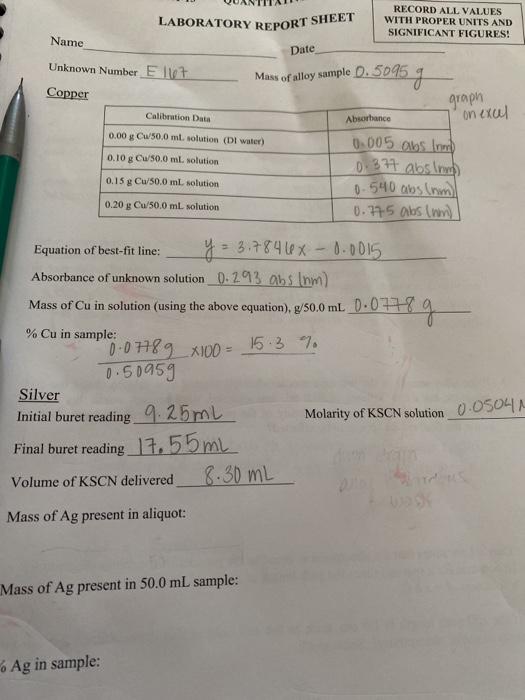 LABORATORY REPORT SHEET
RECORD ALL VALUES
WITH PROPER UNITS AND
SIGNIFICANT FIGURES!
Name
Date
Unknown Number E167
Mass of alloy sample 0.5095 g
Copper
graph
on excel
Calibration Data Absorbance
0.00 g Cu/50.0 mL solution (DI water) 0.005 abs (nm)
0.10 g Cu/50.0 mL solution 0.377 abs (nm)
0.15 g Cu/50.0 mL solution 0.540 abs (nm)
0.20 g Cu/50.0 mL solution 0.775 abs (nm)
Equation of best-fit line: y = 3.7846x - 0.0015
Absorbance of unknown solution 0.293 abs (nm)
Mass of Cu in solution (using the above equation), g/50.0 mL 0.0778 g
% Cu in sample:
0.0778g x100 = 15.3 %
0.5095g
Silver
Initial buret reading 9.25mL
Molarity of KSCN solution 0.0504
Final buret reading 17.55mL
Volume of KSCN delivered 8.30 mL
Mass of Ag present in aliquot:
Mass of Ag present in 50.0 mL sample:
% Ag in sample: